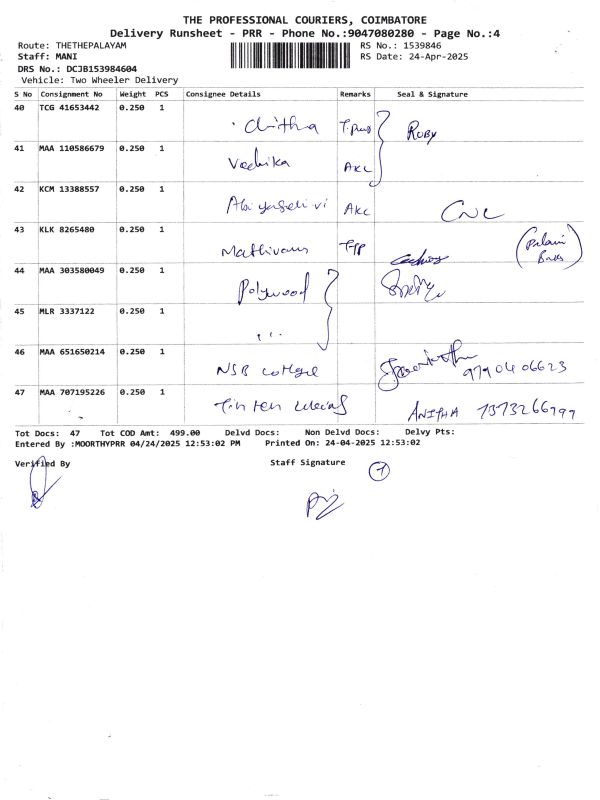 THE PROFESSIONAL COURIERS, COIMBATORE
Delivery Runsheet - PRR - Phone No.:9047080280 - Page No.:4
Route: THETHEPALAYAM RS No.: 1539846
Staff: MANI RS Date: 24-Apr-2025
DRS No.: DCJB153984604
Vehicle: Two Wheeler Delivery
S No Consignment No Weight PCS Consignee Details Remarks Seal & Signature
40 TCG 41653442 0.250 1
Chitha Ruby
41 MAA 110586679 0.250 1
Vedhika AKC
42 KCM 13388557 0.250 1
AKC CNC
43 KLK 8265480 0.250 1
Mathivanan
44 MAA 303580049 0.250 1
Polywood
45 MLR 3337122 0.250 1
...
46 MAA 651650214 0.250 1
NSB college 9790406623
47 MAA 707195226 0.250 1
ANITHA 7373266797
Tot Docs: 47 Tot COD Amt: 499.00 Delvd Docs: Non Delvd Docs: Delvy Pts:
Entered By :MOORTHYPRR 04/24/2025 12:53:02 PM Printed On: 24-04-2025 12:53:02
Verified By Staff Signature